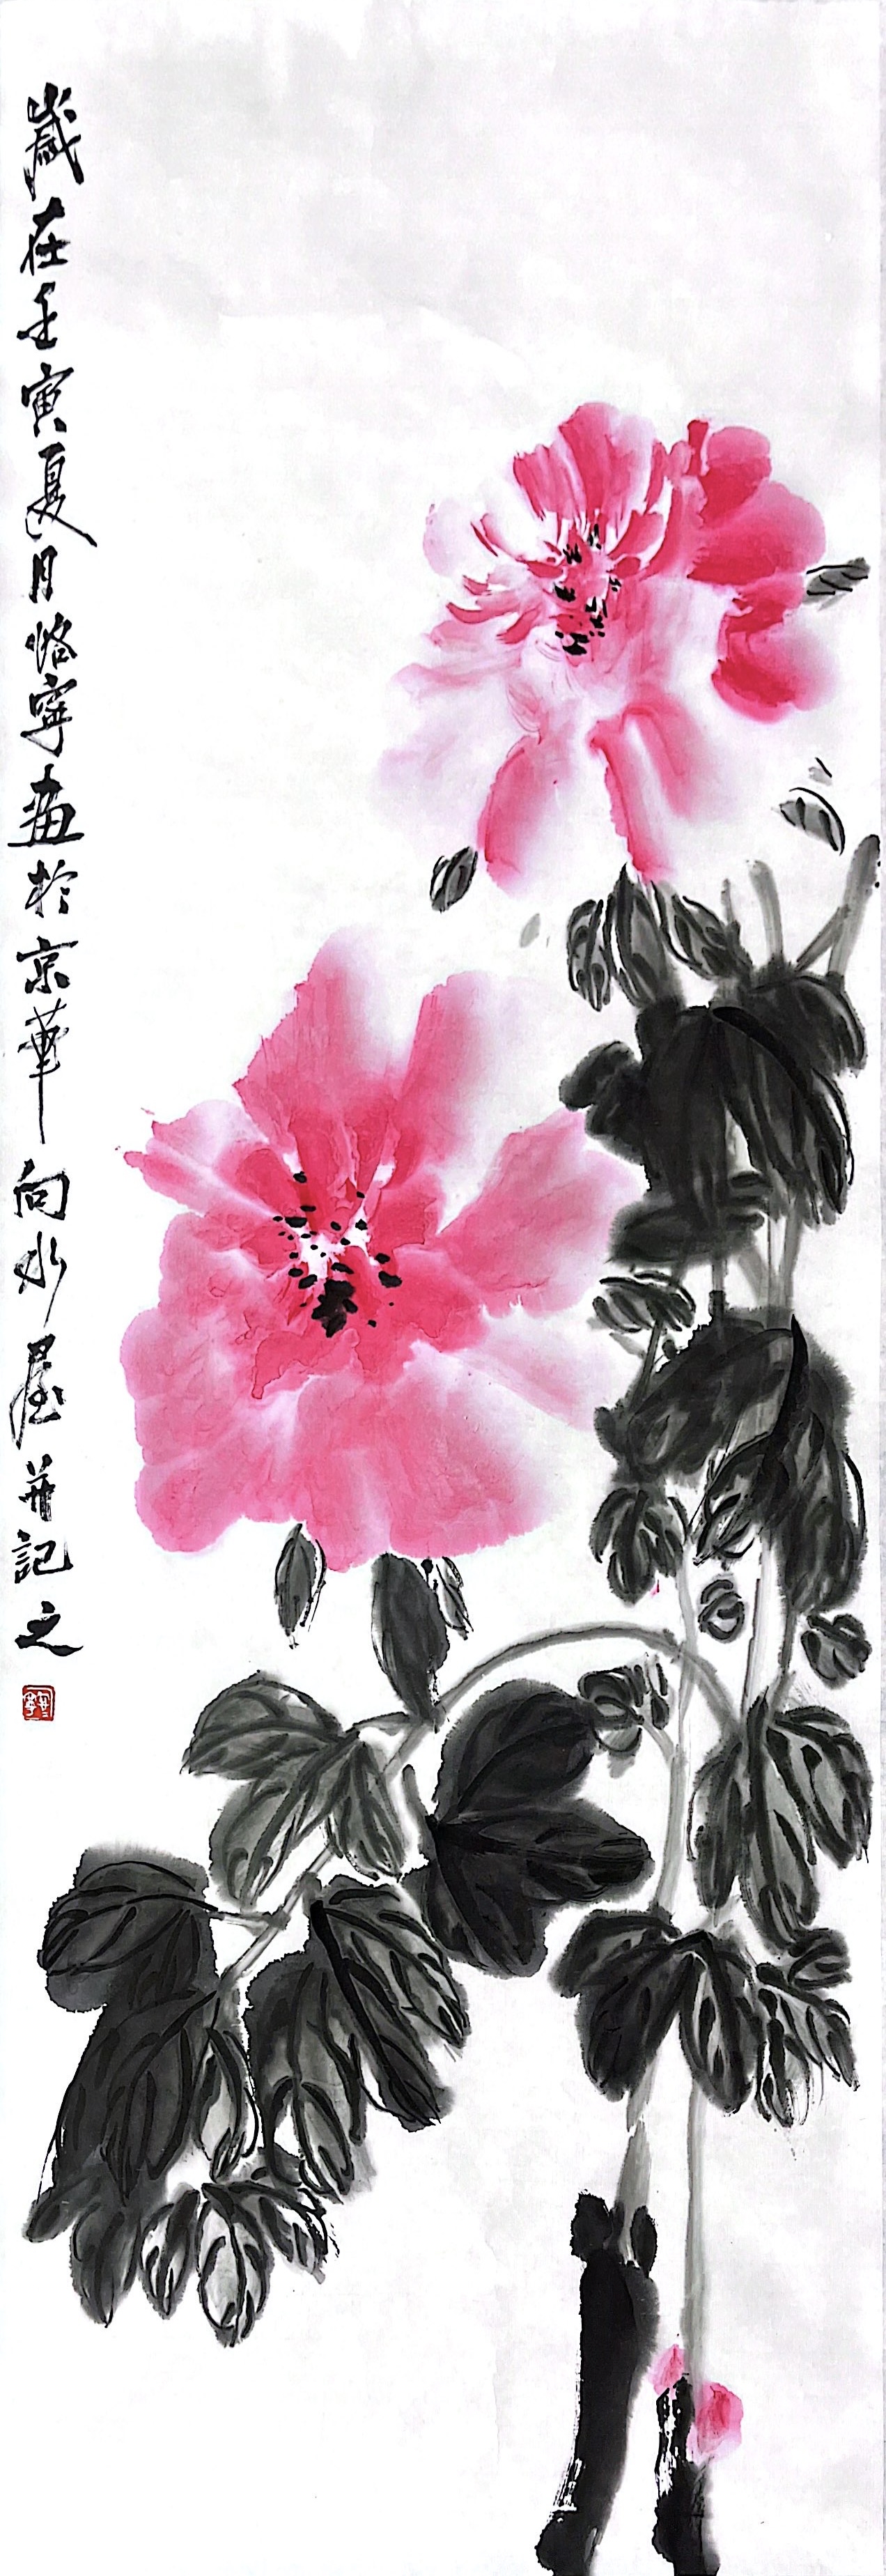 歲在壬寅夏月恪寧畫於京華向水屋并記之